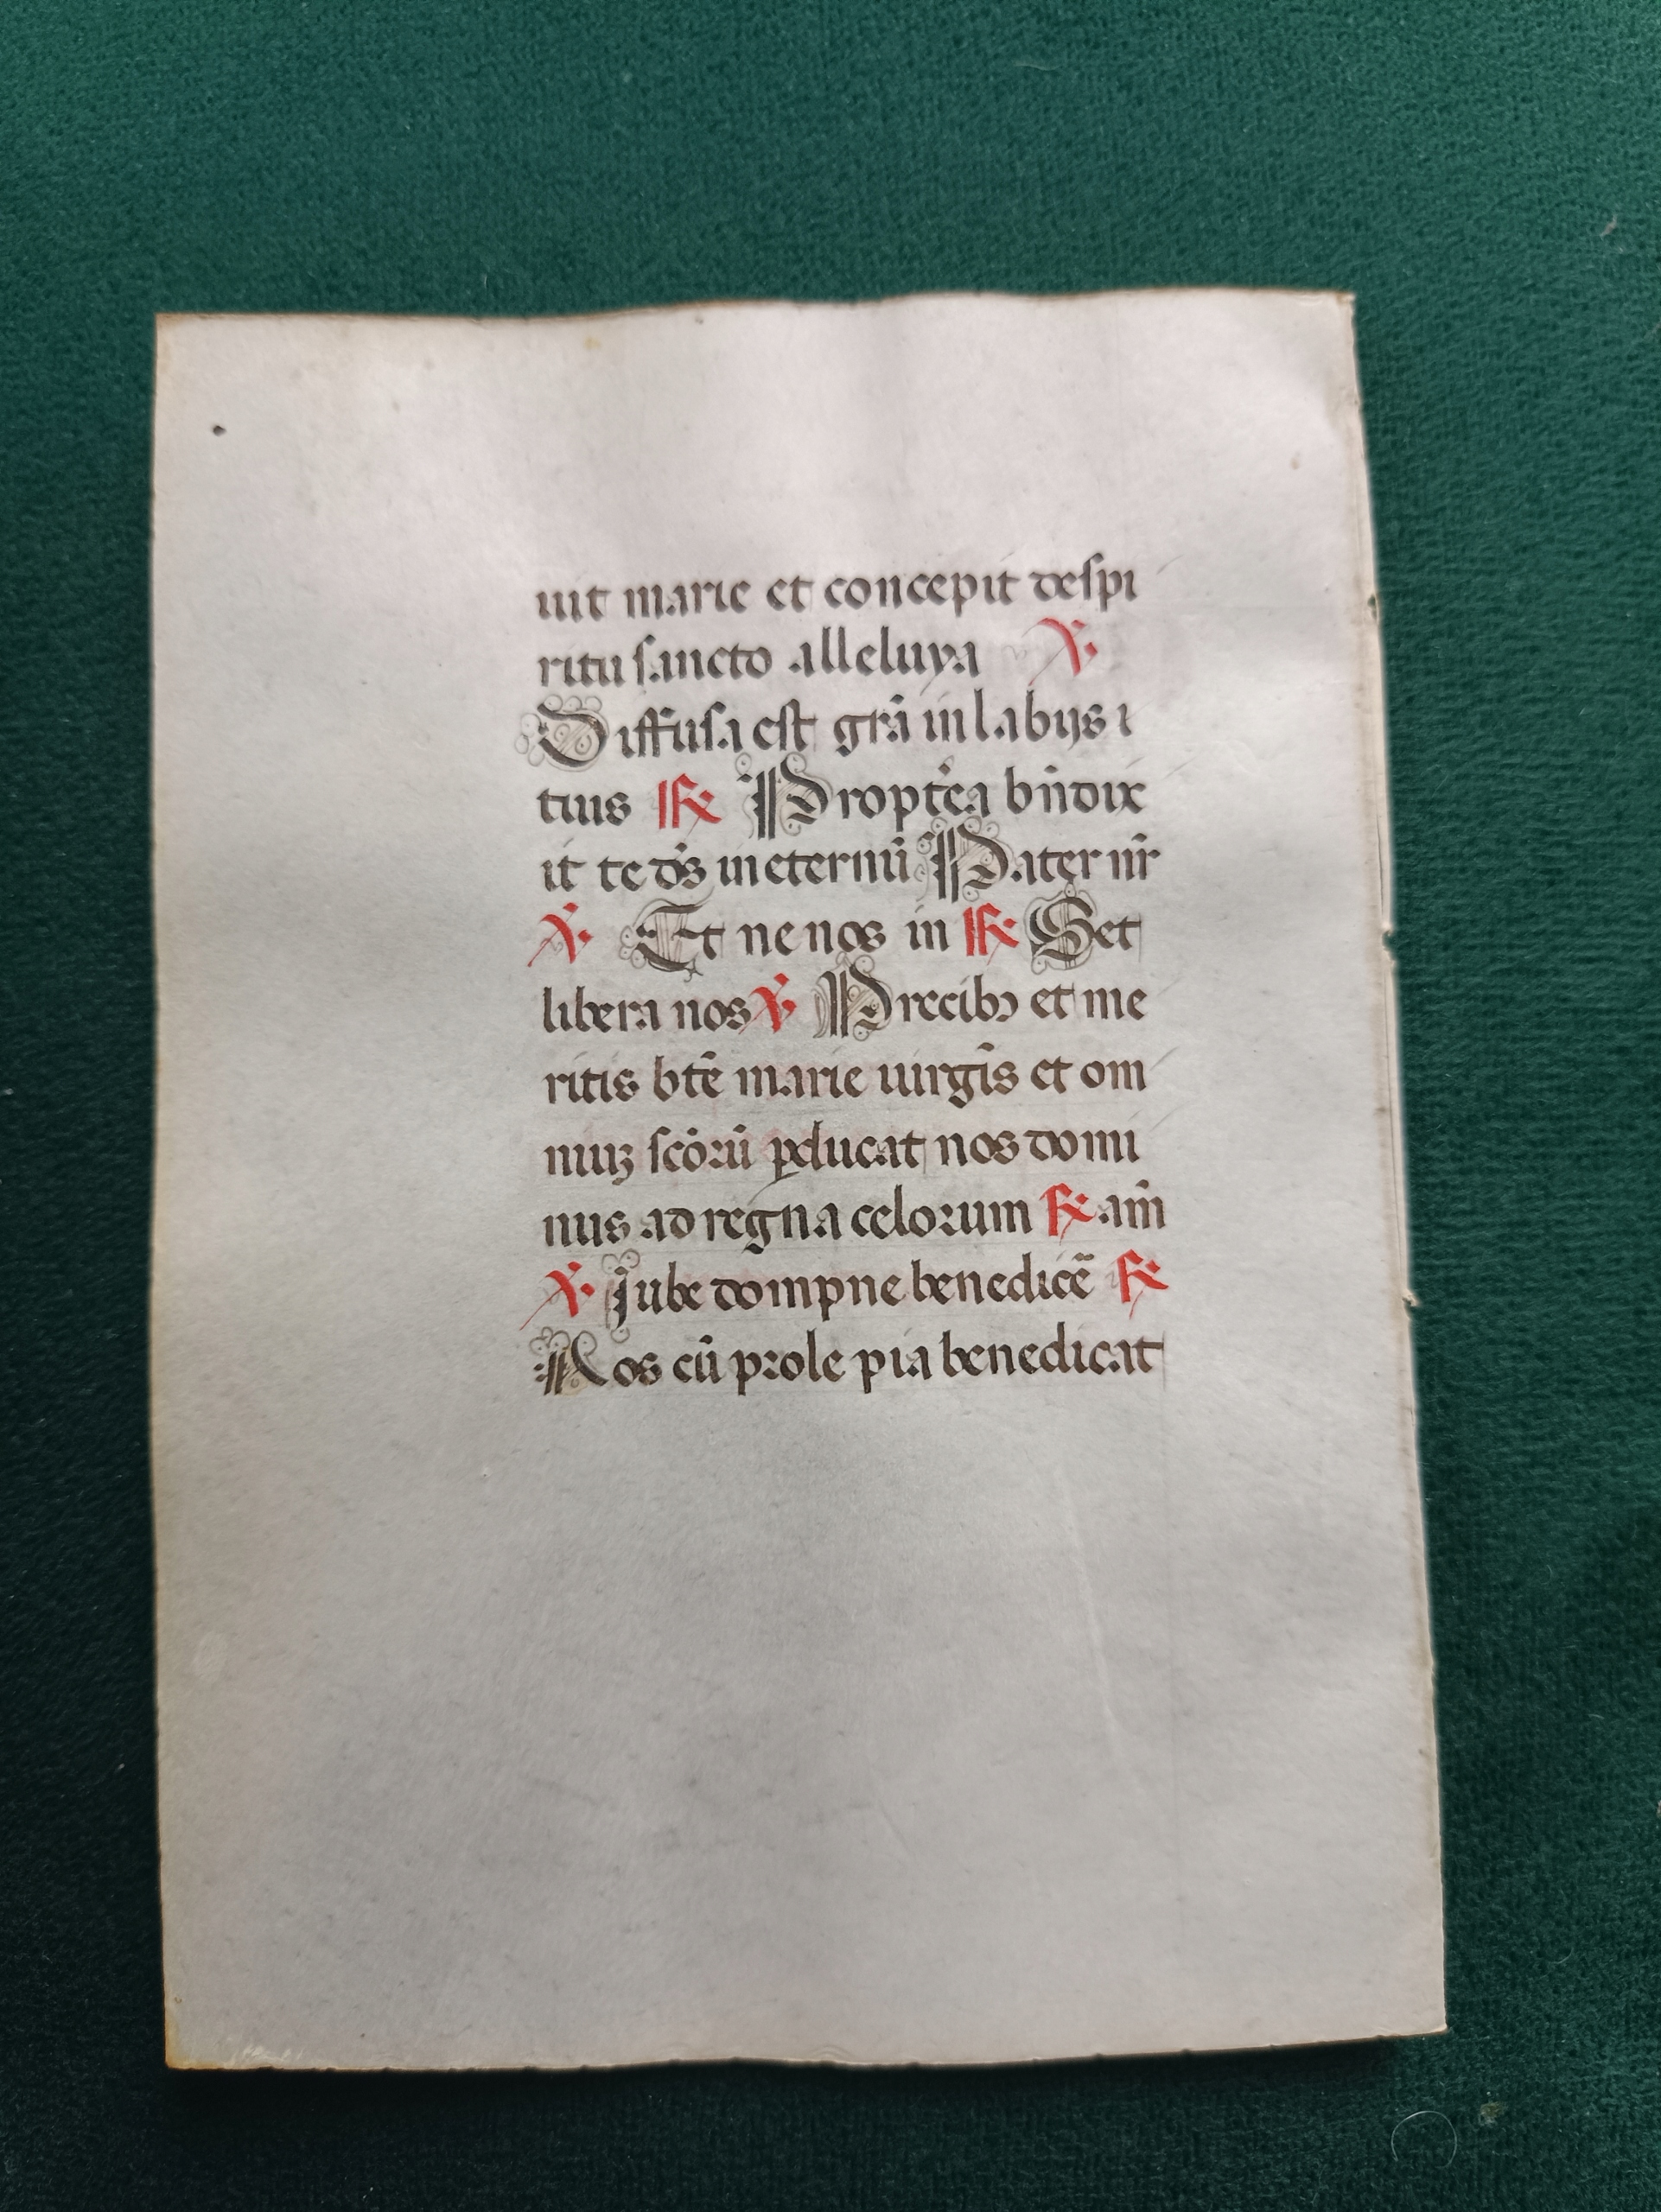 uit marie et concepit de spi
ritu sancto alleluya ℣
Diffusa est grā in labijs i
tuis ℟ Propťea bn̄dix
it te dꝰs in eternū Pater nr̄
℣ Et ne nos in ℟ Set
libera nos ℣ Precibꝫ et me
ritis btē marie uirgīs et om
niuꝫ scōrū ꝑducat nos domi
nus ad regna celorum ℟ am̄
℣ Jube dompne benedicē ℟
Nos cū prole pia benedicat